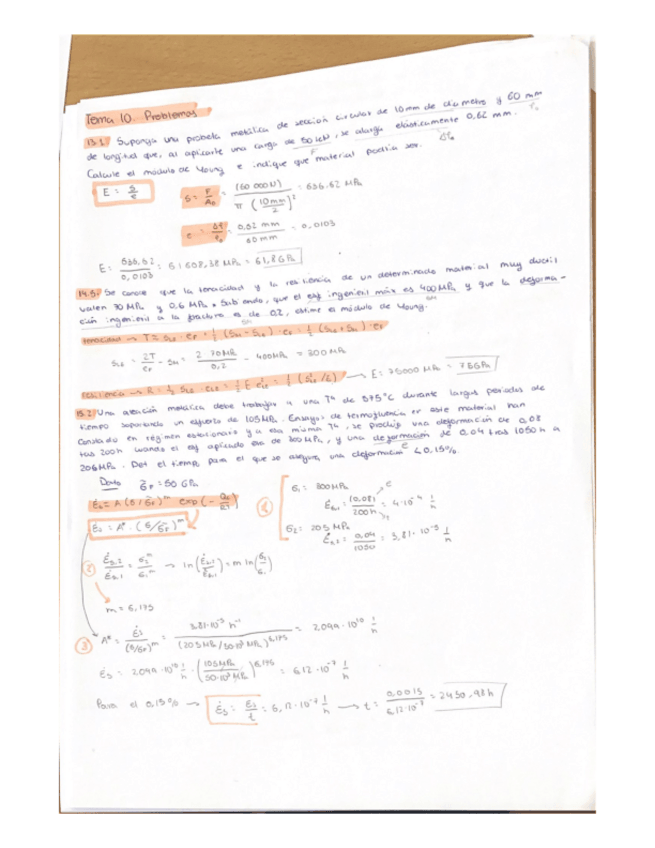 Tema 10. Problemas
13.1 Suponga una probeta metálica de sección circular de 10 mm de diámetro y 60 mm
de longitud que, al aplicarle una carga de 50 kN, se alarga elásticamente 0,62 mm.
Calcule el módulo de Young e indique que material podría ser.
F l₀ Δl₀
E = S/e
S = F/A₀ = (50 000 N) / π (10mm/2)² = 636.62 MPa
e = Δl/l₀ = 0,62 mm / 60 mm = 0,0103
E = 636,62 / 0,0103 = 61608,38 MPa = 61,8 GPa
14.5 Se conoce que la tenacidad y la resiliencia de un determinado material muy ductil
valen 70 MPa y 0,6 MPa. Sabiendo, que el esf ingenieril máx es 400 MPa y que la deforma-
ción ingenieril a la fractura es de 0.2, estime el módulo de Young.
tenacidad → T =
= 2T/e_F - S_M = 2·70MPa / 0,2 - 400MPa = 300 MPa
resiliencia → R = → E = 75000 MPa = 75GPa
15.2 Una aleación metálica debe trabajar a una Tª de 575°C durante largos periodos de
tiempo soportando un esfuerzo de 105 MPa. Ensayos de termofluencia en este material han
constado en régimen estacionario y a esa misma Tª, se produjo una deformación de 0,08
tras 200h cuando el esf aplicado era de 300 MPa, y una deformación de 0,04 tras 1050 h a
205 MPa. Det el tiempo para el que se asegure una deformación < 0,15%.
Dato σ̃_F = 50 GPa
ε̇s = A (σ/σ̃_F)^m exp(- Qc/RT)
ε̇s = A* · (σ/σ̃_F)^m
① σ₁ = 300MPa
ε̇s,1 = (0,08) / 200h = 4·10⁻⁴ 1/h
σ₂ = 205 MPa
ε̇s,2 = 0,04 / 1050 = 3,81·10⁻⁵ 1/h
② ε̇s,2 / ε̇s,1 = σ₂^m / σ₁^m → ln(ε̇s,2/ε̇s,1) = m ln(σ₂/σ₁)
m = 6,175
③ A* = ε̇s / (σ/σ̃_F)^m = 3,81·10⁻⁵ h⁻¹ / (205 MPa/50·10³ MPa)^6,175 = 2,099·10¹⁰ 1/h
ε̇s = 2,099·10¹⁰ 1/h · (105MPa / 50·10³ MPa)^6,175 = 6,12·10⁻⁷ 1/h
Para el 0,15% → ε̇s = εs/t = 6,12·10⁻⁷ 1/h → t = 0,0015 / 6,12·10⁻⁷ = 2450,98h